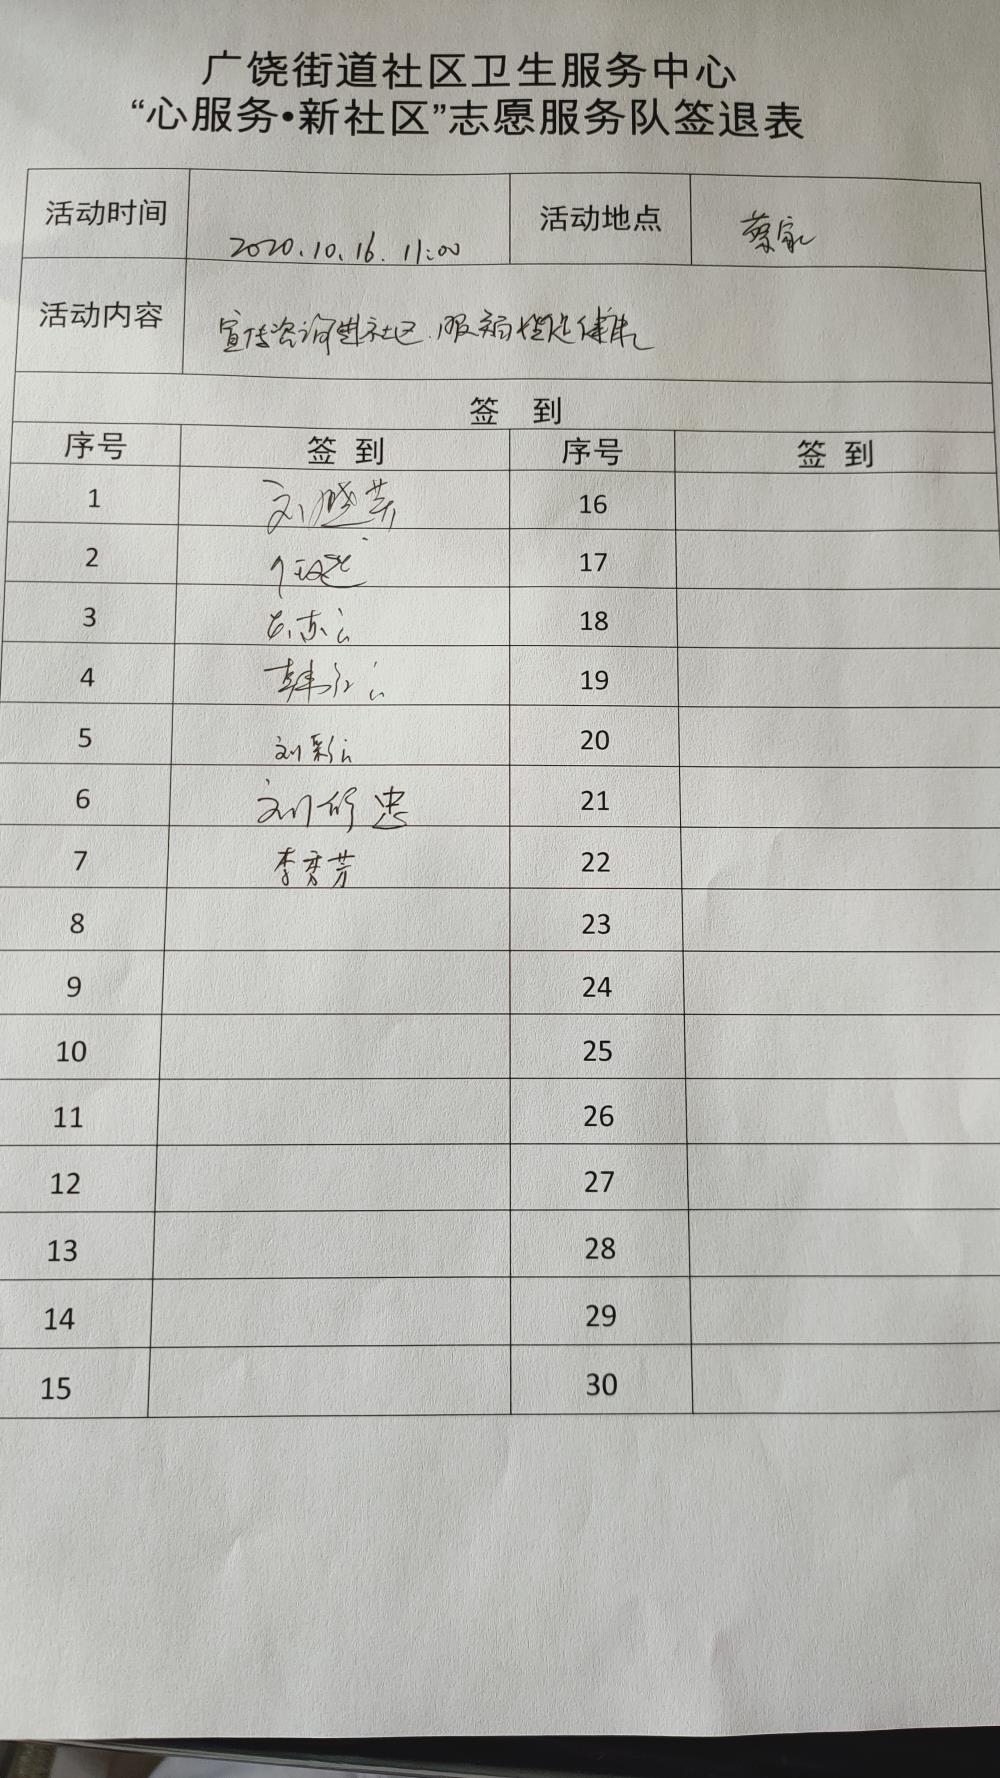 广饶街道社区卫生服务中心
“心服务•新社区”志愿服务队签退表
活动时间 2020.10.16. 11:00 活动地点 蔡家
活动内容 宣传咨询进社区.服务 健康
签 到
序号 签到 序号 签到
1 刘晓芳 16
2 17
3 18
4 19
5 刘彩云 20
6 刘修忠 21
7 李秀芳 22
8 23
9 24
10 25
11 26
12 27
13 28
14 29
15 30